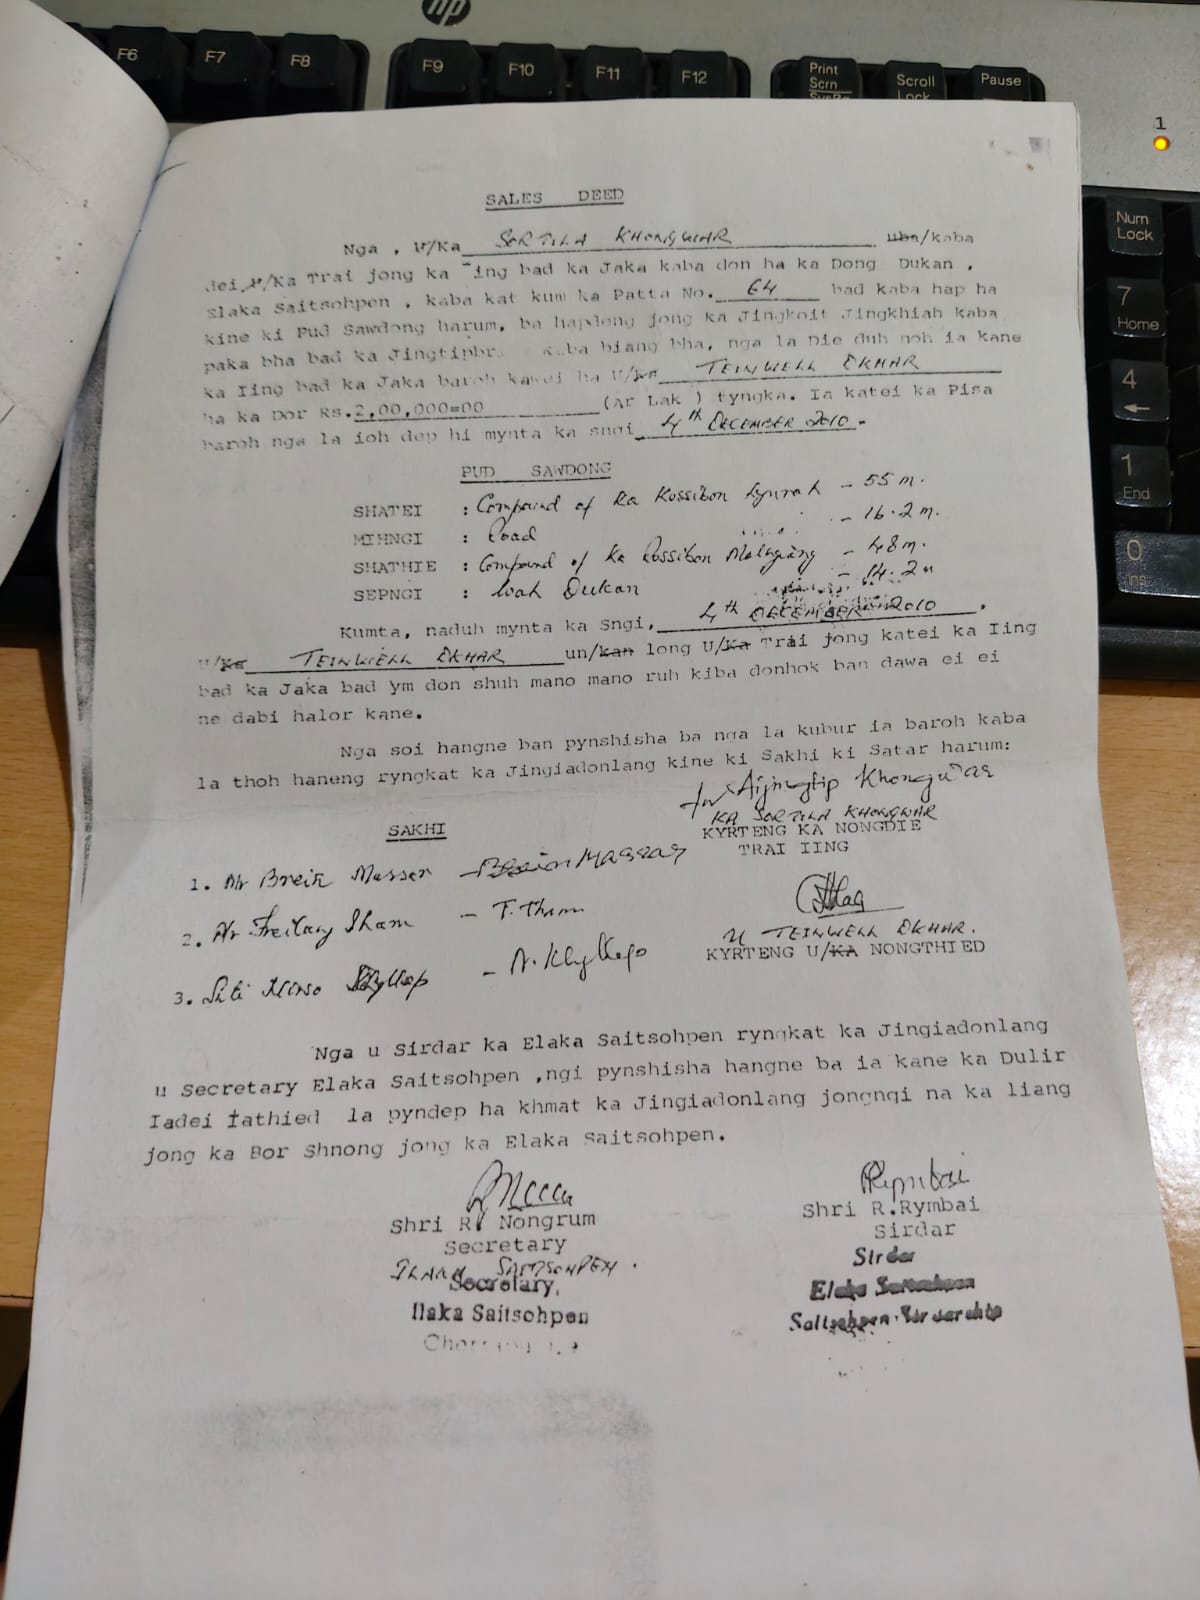 hp
F6 F7 F8 F9 F10 F11 F12 Print Scrn SysRq Scroll Lock Pause
1
Num Lock
7 Home
4
1 End
0 Ins
SALES DEED
Nga , U/Ka SORTILA KHONGWAR uba/kaba
dei U/Ka Trai jong ka Iing bad ka Jaka kaba don ha ka Dong Dukan ,
Elaka Saitsohpen , kaba kat kum ka Patta No. 64 bad kaba hap ha
kine ki Pud Sawdong harum, ba hapdeng jong ka Jingkoit Jingkhiah kaba
paka bha bad ka Jingtipbr kaba biang bha, nga la Die duh noh ia kane
ka Iing bad ka Jaka baroh kawei ha U/Ka TEINWELL DKHAR
ha ka Dor Rs.2,00,000=00 (Ar Lak ) tyngka. Ia katei ka Pisa
baroh nga la ioh dep hi mynta ka sngi 4th DECEMBER 2010.
PUD SAWDONG
SHATEI : Compound of Ka Rossibon - 55 m.
MIHNGI : Road - 16.2 m.
SHATHIE : Compound of Ka Rossibon - 48 m.
SEPNGI : Wah Dukan - 14.2 m
Kumta, naduh mynta ka Sngi, 4th DECEMBER 2010 .
U/Ka TEINWELL DKHAR un/kan long U/Ka Trai jong katei ka Iing
bad ka Jaka bad ym don shuh mano mano ruh kiba donhok ban dawa ei ei
ne dabi halor kane.
Nga soi hangne ban pynshisha ba nga la kubur ia baroh kaba
la thoh haneng ryngkat ka Jingiadonlang kine ki Sakhi ki Satar harum:
Khongwar
KA SORTILA KHONGWAR
SAKHI
KYRTENG KA NONGDIE
TRAI IING
1. Mr Massar
2. Mr Tham - T.Tham
U TEINWELL DKHAR.
KYRTENG U/KA NONGTHIED
3.
Nga u Sirdar ka Elaka Saitsohpen ryngkat ka Jingiadonlang
u Secretary Elaka Saitsohpen ,ngi pynshisha hangne ba ia kane ka Dulir
Iadei Iathied la pyndep ha khmat ka Jingiadonlang jongngi na ka liang
jong ka Bor Shnong jong ka Elaka Saitsohpen.
Rymbai
Shri R. Nongrum Shri R.Rymbai
Secretary Sirdar
ILAKA SAITSOHPEN. Sirdar
Secretary, Elaka Saitsohpen
Ilaka Saitsohpen Saitsohpen Sirdarship